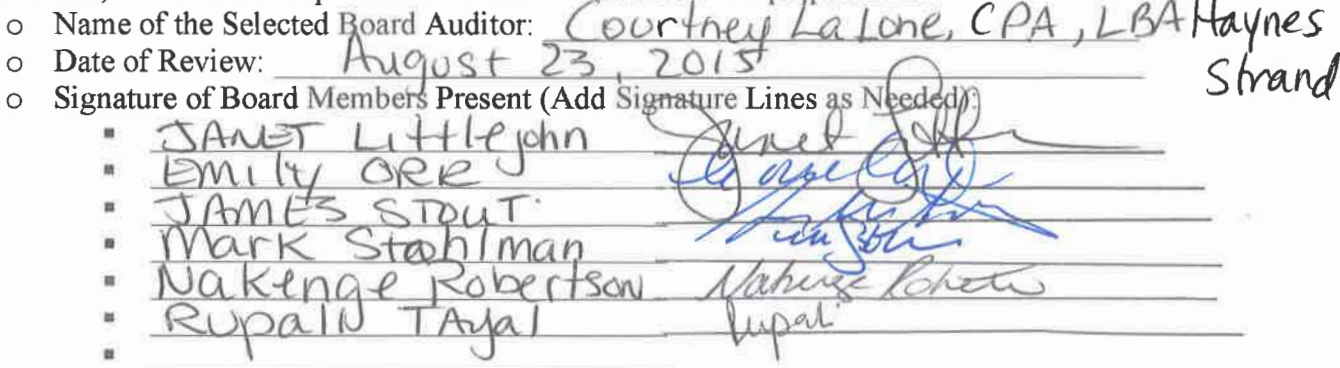 o Name of the Selected Board Auditor: Courtney LaLone, CPA, LBA Haynes
o Date of Review: August 23, 2015 Strand
o Signature of Board Members Present (Add Signature Lines as Needed):
▪ JANET Littlejohn Janet
▪ EMILY ORR
▪ JAMES STOUT
▪ Mark Stohlman
▪ Nakenge Robertson Nakenge Robertson
▪ RUPALI TAyal Rupali
▪